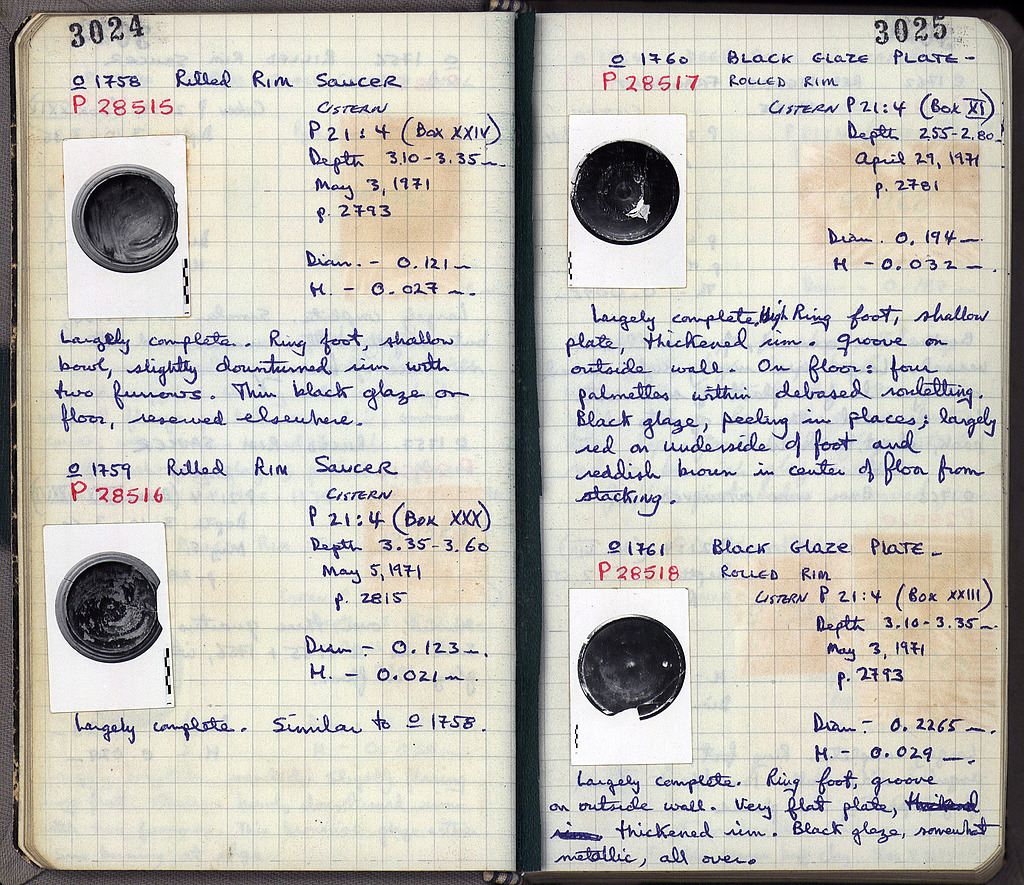 3024
o 1758 Rilled Rim Saucer
P 28515
Cistern
P 21:4 (Box XXIV)
Depth 3.10-3.35 m.
May 3, 1971
p. 2793
Diam. - 0.121 m
H. - 0.027 m.
Largely complete. Ring foot, shallow
bowl, slightly downturned rim with
two furrows. Thin black glaze on
floor, reserved elsewhere.
o 1759 Rilled Rim Saucer
P 28516
Cistern
P 21:4 (Box XXX)
Depth 3.35-3.60
May 5, 1971
p. 2815
Diam - 0.123 m.
H. - 0.021 m.
Largely complete. Similar to o 1758.
3025
o 1760 Black Glaze Plate -
P 28517 Rolled Rim
Cistern P 21:4 (Box XI)
Depth 2.55-2.80
April 29, 1971
p. 2781
Diam. 0.194 m.
H - 0.032 m.
Largely complete. High Ring foot, shallow
plate, thickened rim. Groove on
outside wall. On floor: four
palmettes within debased rouletting.
Black glaze, peeling in places; largely
red on underside of foot and
reddish brown in center of floor from
stacking.
o 1761 Black Glaze Plate -
P 28518 Rolled Rim
Cistern P 21:4 (Box XXIII)
Depth 3.10-3.35 m.
May 3, 1971
p. 2793
Diam - 0.2265 m.
H. - 0.029 m.
Largely complete. Ring foot, groove
on outside wall. Very flat plate, thickened
rim thickened rim. Black glaze, somewhat
metallic, all over.